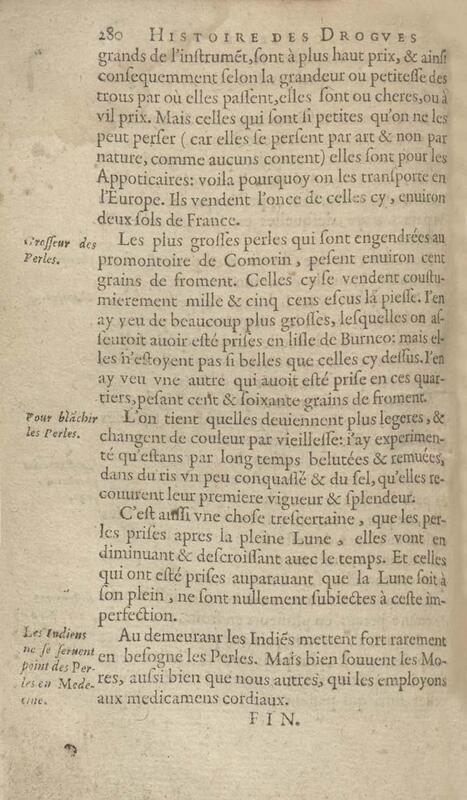 280 HISTOIRE DES DROGVES
grands de l'instrumẽt, sont à plus haut prix, & ainsi
consequemment selon la grandeur ou petitesse des
trous par où elles passent, elles sont ou cheres, ou à
vil prix. Mais celles qui sont si petites qu'on ne les
peut perser ( car elles se persent par art & non par
nature, comme aucuns content) elles sont pour les
Appoticaires: voila pourquoy on les transporte en
l'Europe. Ils vendent l'once de celles cy, enuiron
deux sols de France.
Grosseur des
Perles.
Les plus grosses perles qui sont engendrées au
promontoire de Comorin, pesent enuiron cent
grains de froment. Celles cy se vendent coustu-
mierement mille & cinq cens escus la piesse. I'en
ay veu de beaucoup plus grosses, lesquelles on as-
seuroit auoir esté prises en lisle de Burneo: mais el-
les n'estoyent pas si belles que celles cy dessus. I'en
ay veu vne autre qui auoit esté prise en ces quar-
tiers, pesant cent & soixante grains de froment.
Pour blãchir
les Perles.
L'on tient quelles deuiennent plus legeres, &
changent de couleur par vieillesse: i'ay experimen-
té qu'estans par long temps belutées & remuées,
dans du ris vn peu conquassé & du sel, qu'elles re-
couurent leur premiere vigueur & splendeur.
C'est aussi vne chose trescertaine, que les per-
les prises apres la pleine Lune, elles vont en
diminuant & descroissant auec le temps. Et celles
qui ont esté prises auparauant que la Lune soit à
son plein, ne sont nullement subiectes à ceste im-
perfection.
Les Indiens
ne se seruent
point des Per-
les en Mede-
cine.
Au demeuranr les Indiẽs mettent fort rarement
en besogne les Perles. Mais bien souuent les Mo-
res, aussi bien que nous autres, qui les employons
aux medicamens cordiaux.
FIN.